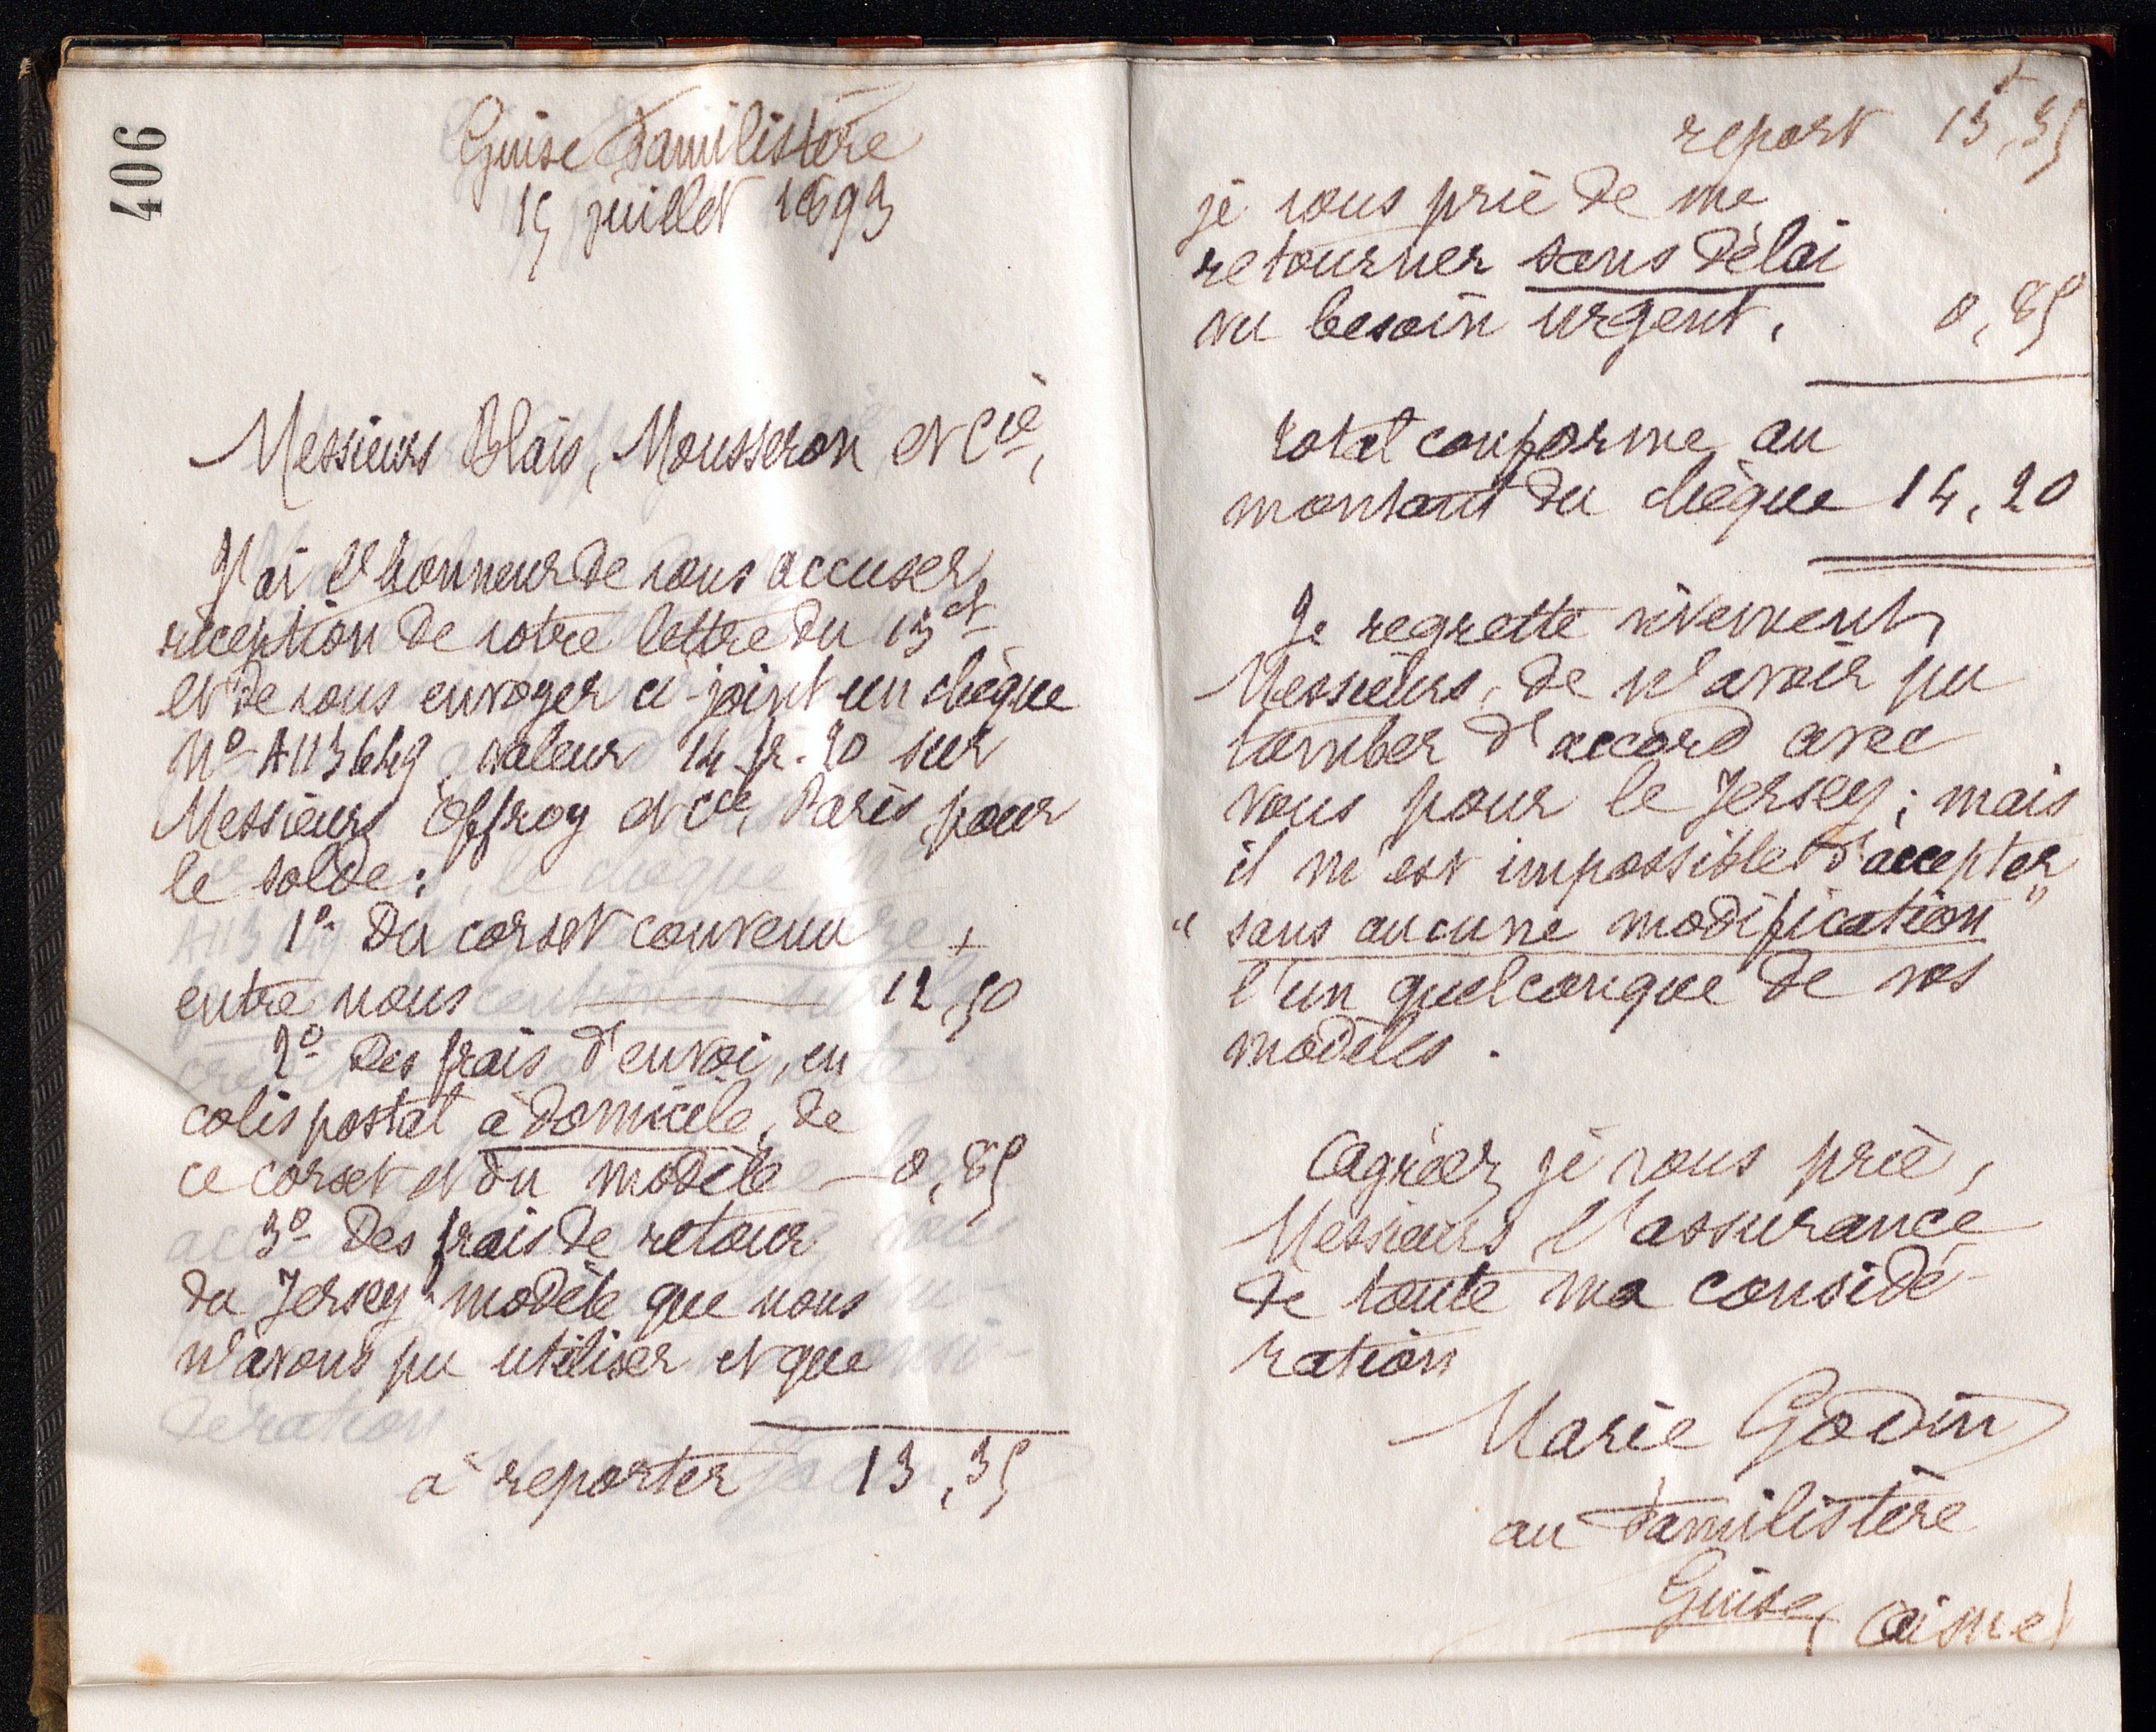 406
Guise Familistère
15 juillet 1893
Messieurs Blais, Mousseron et Cie,
J'ai l'honneur de vous accuser
réception de votre lettre du 13 ct
et de vous envoyer ci-joint un chèque
No A113649, valeur 14 fr. 20 sur
Messieurs Offroy et Cie Paris, pour
le solde :
1o Du corset convenu
entre nous 12,50
2o Des frais d'envoi, en
colis postal à domicile, de
ce corset et du modèle — 0,85
3o Des frais de retour
du Jersey modèle que nous
n'avons pu utiliser et que
à reporter 13,35
report 13,35
je vous prie de me
retourner sans délai
vu besoin urgent. 0,85
total conforme au
montant du chèque 14,20
Je regrette vivement,
Messieurs, de n'avoir pu
tomber d'accord avec
vous pour le Jersey ; mais
il m'est impossible d'accepter
"sans aucune modification"
l'un quelconque de vos
modèles.
Agréez, je vous prie,
Messieurs, l'assurance
de toute ma considé-
ration
Marie Godin
au Familistère
Guise (Aisne)